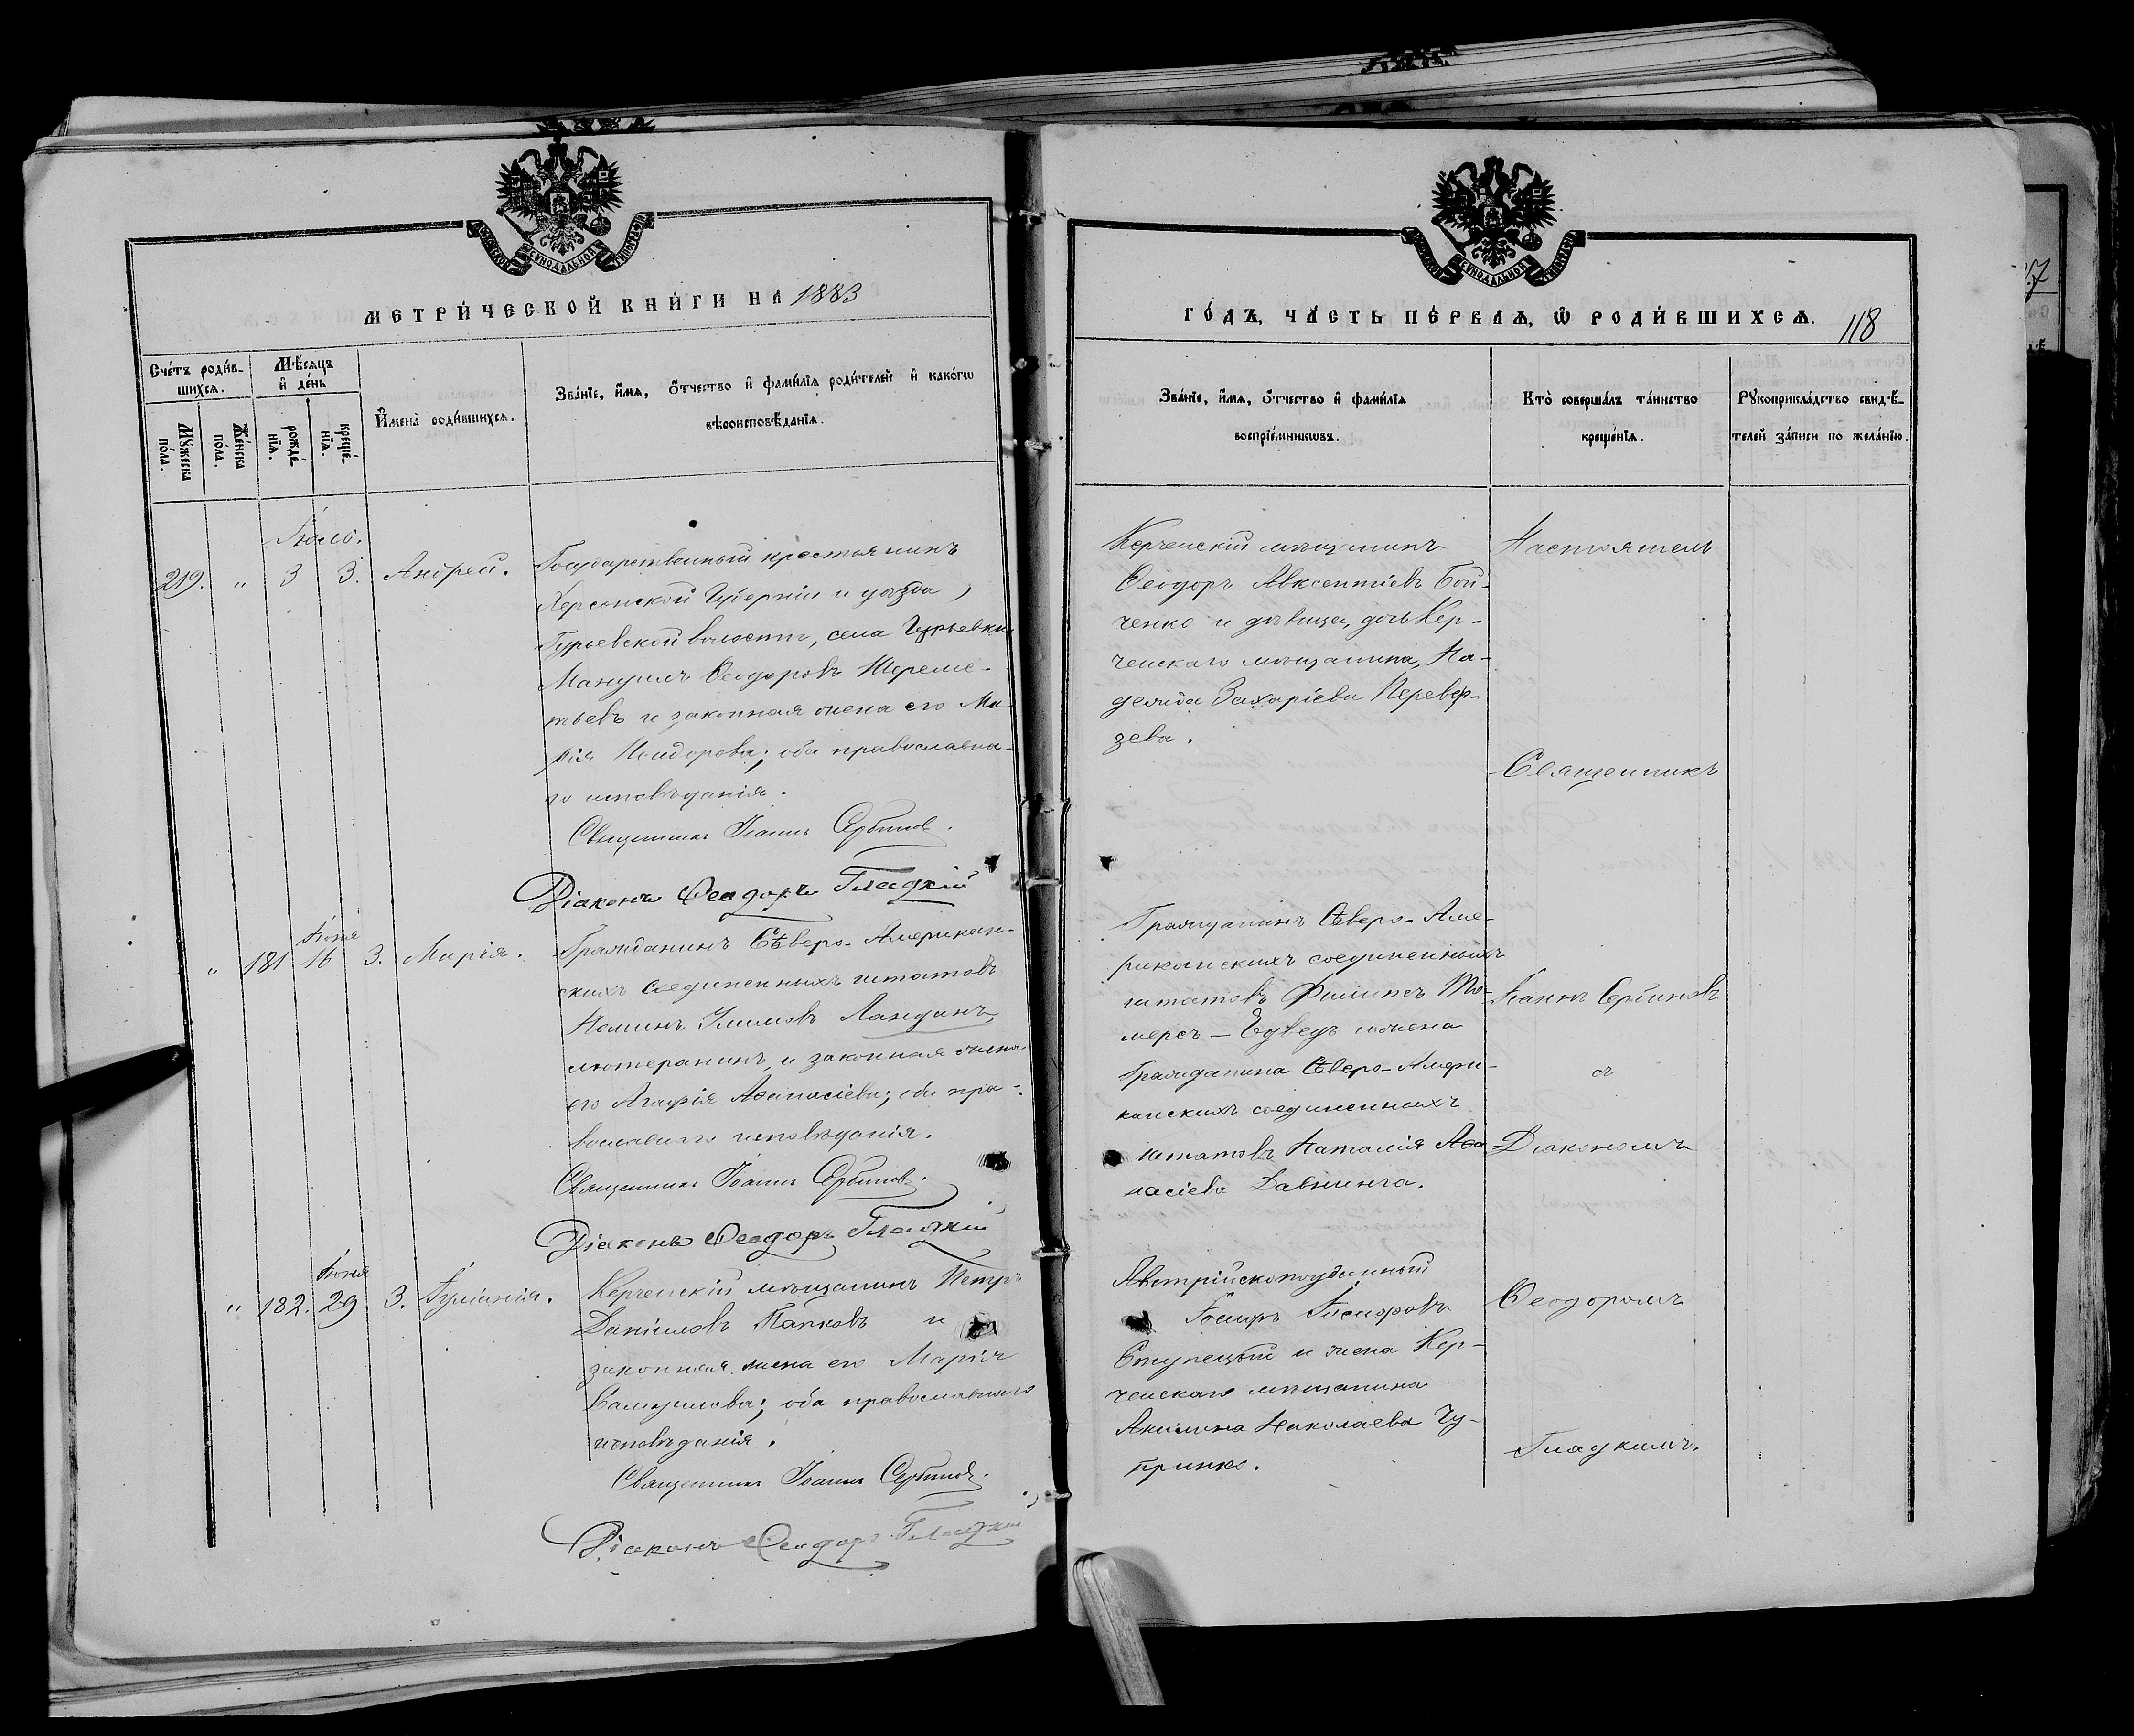 МЕТРИ́ЧЕСКОЙ КНИ́ГИ НА 1883
Сче́тъ роди́в-
шихсѧ.
Мѣ́сѧцъ
и҆ де́нь
Мꙋ́жеска
по́ла.
Же́нска
по́ла.
рожде́-
нїѧ.
креще́-
нїѧ.
И҆мена̀ роди́вшихсѧ.
Зва́нїе, и҆́мѧ, ѻ҆́тчество и҆ фами́лїѧ роди́телей и҆ како́гѡ
вѣроисповѣ́данїѧ.
Іюль.
219. " 3 3. Андрей.
Государственный крестьянинъ
Херсонской Губерніи и уѣзда,
Гурьевской волости, села Гурьевки
Мануилъ Ѳеодоровъ Шереме-
тьевъ и законная жена его Ма-
рія Исидорова; оба православна-
го исповѣданія.
Священникъ Іоаннъ Сербиновъ.
Діаконъ Ѳеодоръ Гладкій
" 181 Іюня 16 3. Марія.
Гражданинъ Сѣверо-Американ-
скихъ соединенныхъ штатовъ
Ланданъ,
лютеранинъ, и законная жена
его Агафія Аѳанасіева; оба пра-
вославнаго исповѣданія.
Священникъ Іоаннъ Сербиновъ.
Діаконъ Ѳеодоръ Гладкій
" 182. Іюня 29 3. Іуліанія.
Керченскій мѣщанинъ Петръ
Даніиловъ Папковъ и
законная жена его Марія
Самуилова; оба православнаго
исповѣданія.
Священникъ Іоаннъ Сербиновъ.
Діаконъ Ѳеодоръ Гладкій
ГО́ДЪ, ЧА́СТЬ ПЕ́РВАѦ, Ѿ РОДИ́ВШИХСѦ. 118
Зва́нїе, и҆́мѧ, ѻ҆́тчество и҆ фами́лїѧ
воспрїе́мникѡвъ.
Кто̀ соверша́лъ та́инство
креще́нїѧ.
Рꙋкоприкла́дство свидѣ́-
телей за́писи по жела́нїю.
Керченскій мѣщанинъ
Ѳеодоръ Авксентіевъ Бой-
ченко и дѣвица, дочь Кер-
ченскаго мѣщанина, На-
дежда Захаріева Перевер-
зева.
Гражданинъ Сѣверо-Аме-
риканскихъ соединенныхъ
штатовъ Филипсъ То-
мерсъ - Едведъ и жена
Гражданина Сѣверо-Амери-
канскихъ соединенныхъ
штатовъ Наталія Аѳа-
насіева
Австрійскоподданный
Іосифъ Іосифовъ
Ступецкій и жена Кер-
ченскаго мѣщанина
Акилина Николаева Чу-
принко.
Настоятель
Священникъ
Іоаннъ Сербиновъ
съ
Діакономъ
Ѳеодоромъ
Гладкимъ.